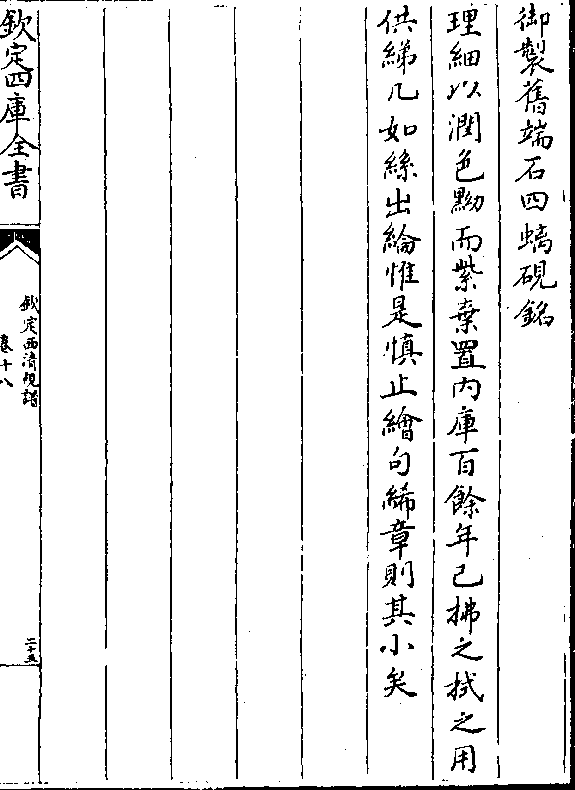 御製舊端石四螭硯銘
理細以潤色黝而紫棄置内庫百餘年已拂之拭之用
供綈几如絲出綸惟是慎止繪句絺章則其小矣
欽定四庫全書
欽定西清硯譜
卷十八
二十五